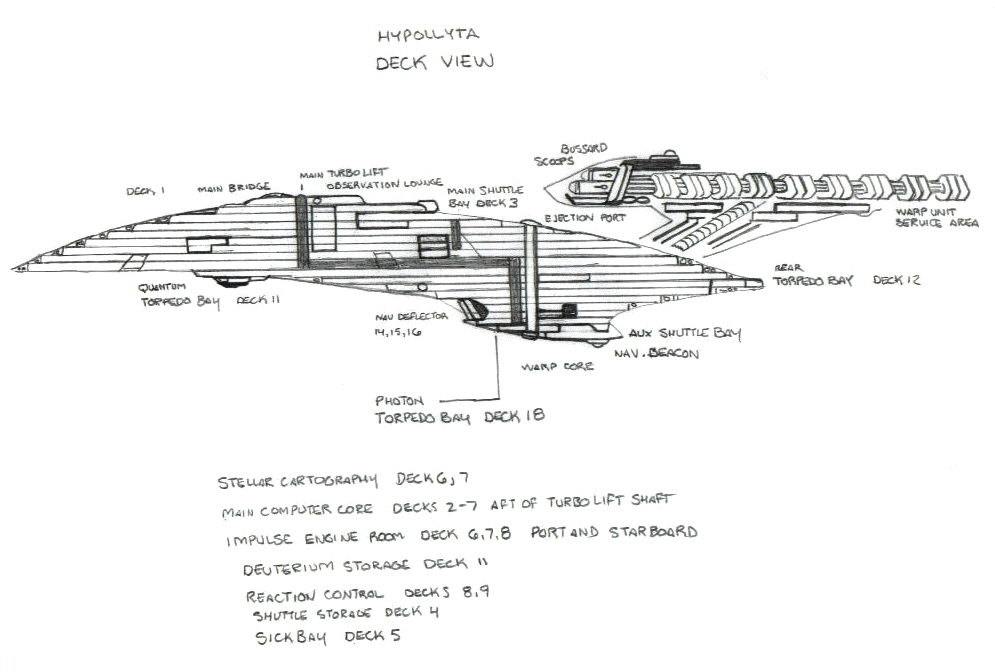 HYPOLLYTA
DECK VIEW
BUSSARD
SCOOPS
DECK 1
MAIN BRIDGE
MAIN TURBO LIFT
OBSERVATION LOUNGE
MAIN SHUTTLE
BAY DECK 3
EJECTION PORT
WARP UNIT
SERVICE AREA
QUANTUM
TORPEDO BAY DECK 11
REAR
TORPEDO BAY DECK 12
NAV DEFLECTOR
14,15,16
AUX SHUTTLE BAY
NAV. BEACON
WARP CORE
PHOTON
TORPEDO BAY DECK 18
STELLAR CARTOGRAPHY DECK 6,7
MAIN COMPUTER CORE DECKS 2-7 AFT OF TURBOLIFT SHAFT
IMPULSE ENGINE ROOM DECK 6,7,8 PORT AND STARBOARD
DEUTERIUM STORAGE DECK 11
REACTION CONTROL DECKS 8,9
SHUTTLE STORAGE DECK 4
SICKBAY DECK 5